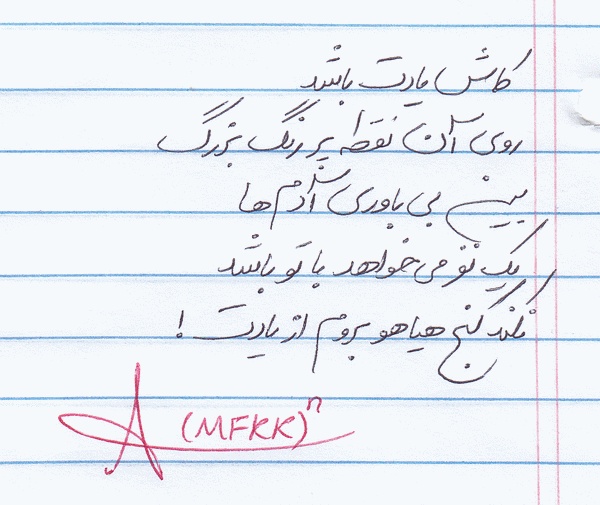 کاش یادت باشد
روی آن نقطه پر رنگ بزرگ
بین بی باوری آدم ها
یک نفر می خواهد با تو باشد
نکند کنج هیاهو بروم از یادت !
(MFKK)ⁿ